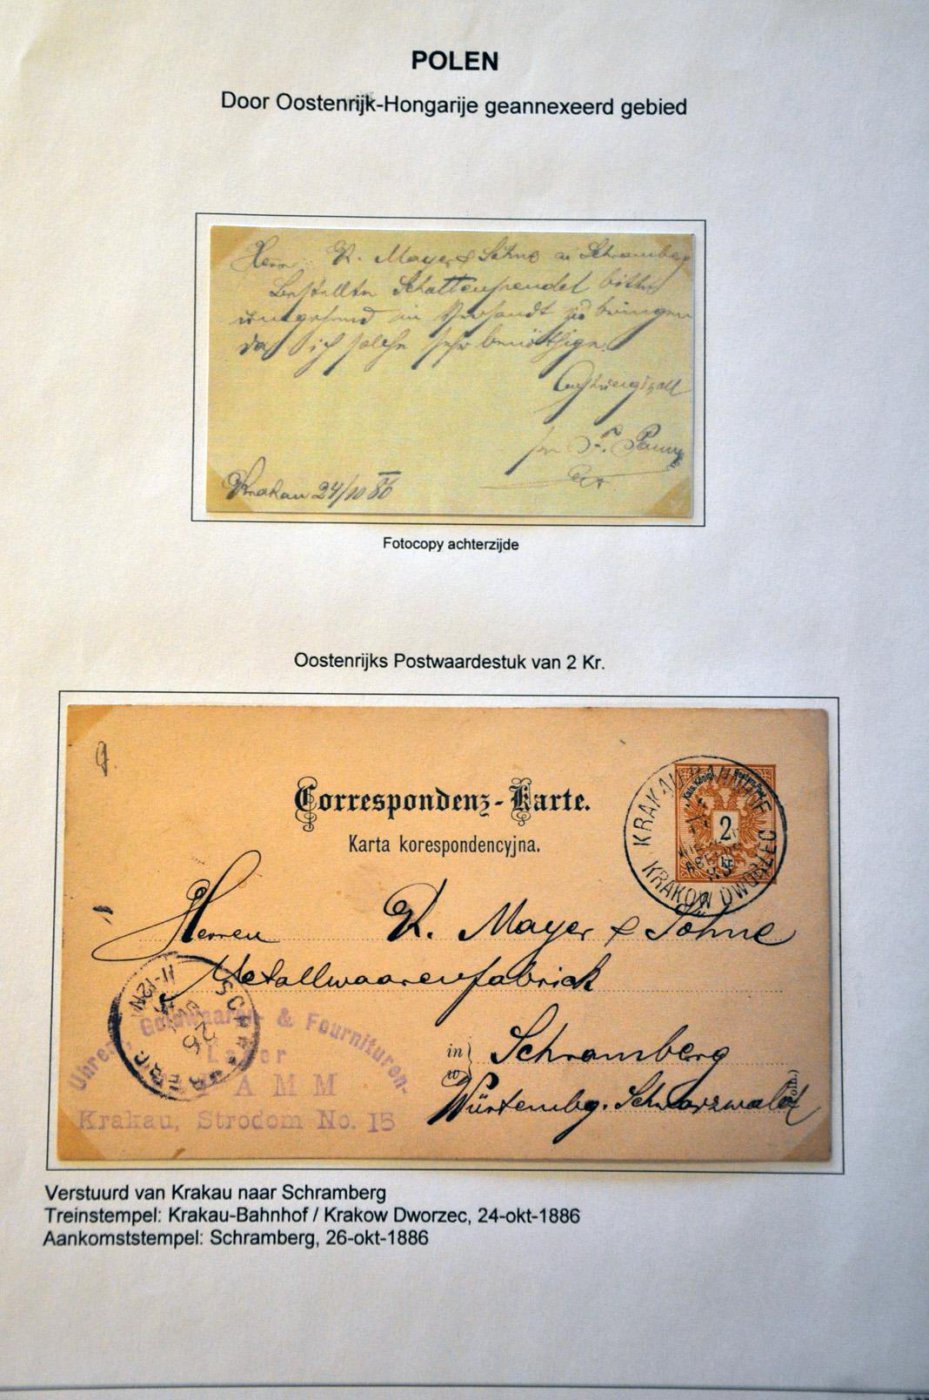 POLEN
Door Oostenrijk-Hongarije geannexeerd gebied
Herrn K. Mayer & Söhne in Schramberg
Bestellte Schattenpendel bitte
umgehend in Versandt zu bringen
da ich solche sehr benöthige.
Achtungsvoll
per F.
Krakau 24/10 86
Fotocopy achterzijde
Oostenrijks Postwaardestuk van 2 Kr.
Correspondenz-Karte.
Karta korespondencyjna.
KRAKAU BAHNHOF
KRAKOW DWORZEC
2
Herren K. Mayer & Söhne
Metallwaarenfabrick
in Schramberg
w
Würtembg. Schwarzwald
11-12N
26
Uhren, & Fournituren-
Lager
Krakau, Strodom No. 15
Verstuurd van Krakau naar Schramberg
Treinstempel: Krakau-Bahnhof / Krakow Dworzec, 24-okt-1886
Aankomststempel: Schramberg, 26-okt-1886